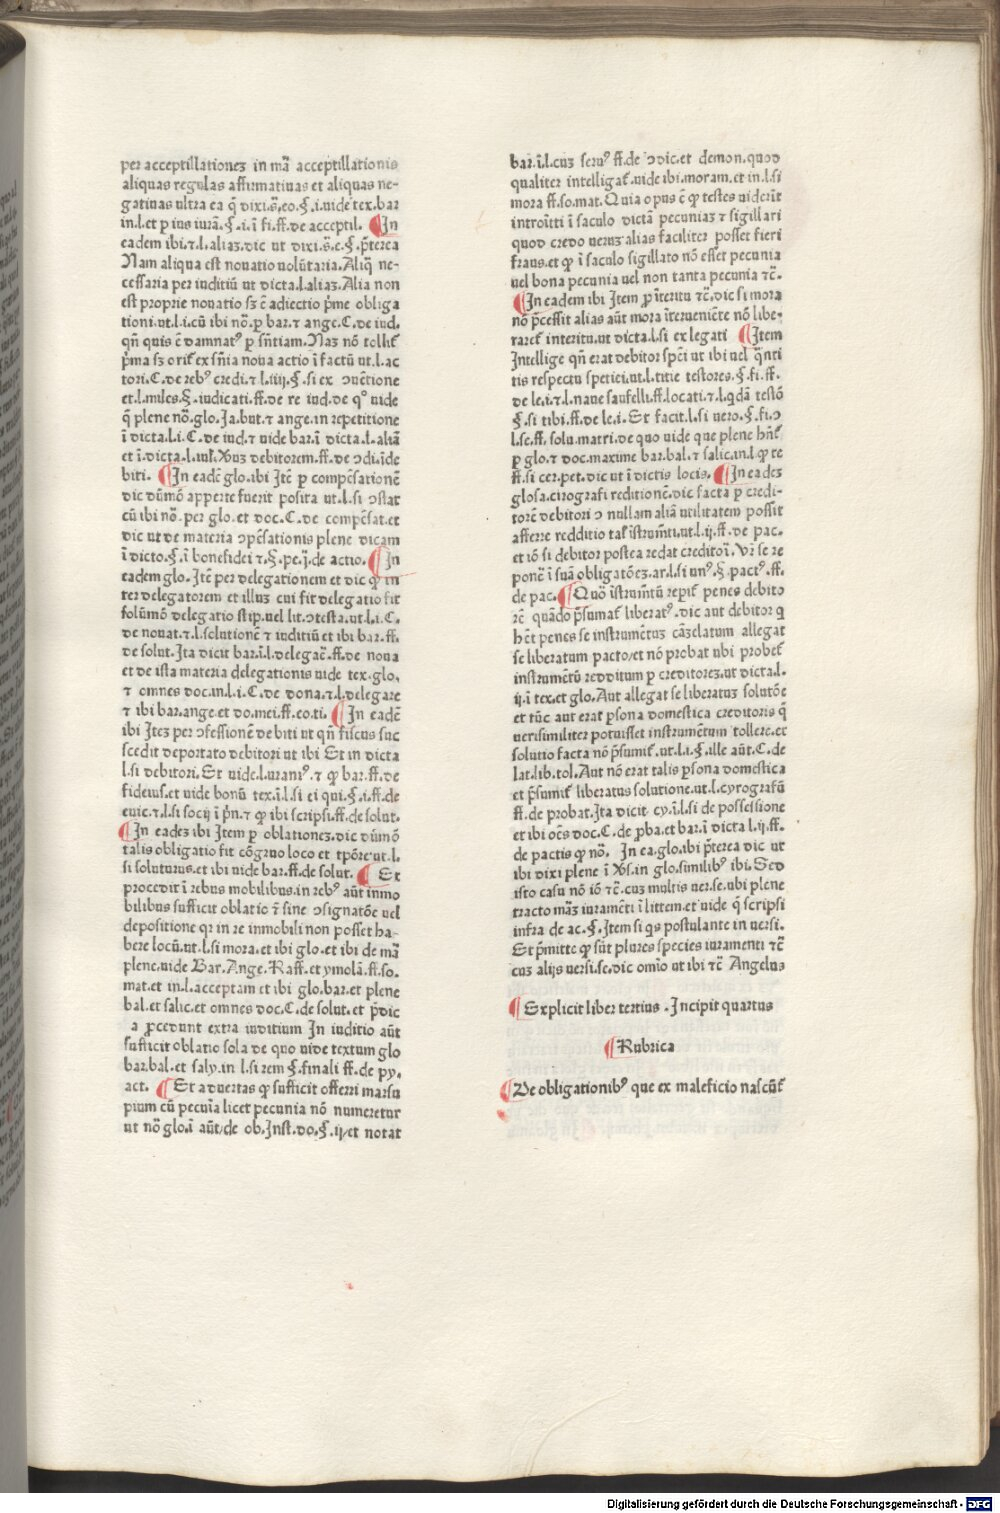 per acceptillationeʒ in mā acceptillationis
aliquas regulas affirmatiuas et aliquas ne-
gatiuas ultra ea q̄ dixi.s̄.eo.§.i.uide tex.bar
in.l.et p ius iurā.§.i.ī fi.ff.de acceptil. ¶In
eadem ibi.⁊.l.aliaʒ.dic ut dixi.s̄.e.§.p̄terea
Nam aliqua est nouatio volūtaria.Aliq̄ ne-
cessaria per iuditiū ut dicta.l.aliaʒ.Alia non
est proprie nouatio sʒ ē adiectio p̄me obliga
tioni.ut.l.i.cū ibi nō.p bar.⁊ ange.C.de iud.
qn̄ quis ē damnatꝰ p sn̄tiam.Naʒ nō tollit̄
p̄ma sʒ orit̄ ex sn̄ia noua actio ī factū ut.l.ac
tori.C.de rebꝰ credi.⁊ l.iiij.§.si ex ↄuētione
et.l.miles.§.iudicati.ff.de re iud.de qº uide
q̄ plene nō.glo.Ja.but.⁊ ange.in repetitione
ī dicta.l.i.C.de iud.⁊ uide bar.ī dicta.l.aliā
et ī.dicta.l.iul.Xuʒ debitorem.ff.de ↄdi.īde
biti. ¶In eadē glo.ibi Itē p compēsationē
dic dūmō apperte fuerit posita ut.l.si ↄstat
cū ibi nō.per glo.et doc.C.de compēsat.et
dic ut de materia ↄpēsationis plene dicam
ī dicto.§.ī bonefidei ⁊.§.pe.j.de actio. ¶In
eadem glo.Itē per delegationem et dic ꝙ in
ter delegatorem et illuʒ cui fit delegatio fit
folūmō delegatio stip.uel lit.ↄtesta.ut.l.i.C.
de nouat.⁊.l.solutionē ⁊ iuditiū et ibi bar.ff.
de solut.Ita dicit bar.ī.l.delegaē.ff.de noua
et de ista materia delegationis uide tex.glo.
⁊ omnes doc.in.l.i.C.de dona.⁊.l.delegare
⁊ ibi bar.ange.et do.mei.ff.eo.ti. ¶In eadē
ibi Iteʒ per ↄfessionē debiti ut qn̄ fiscus suc
scedit deportato debitori ut ibi Et in dicta
l.si debitori.Et uide.l.uraniꝰ.⁊ ꝙ bar.ff.de
fideius.et uide bonū tex.ī.l.si ei qui.§.i.ff.de
euic.⁊.l.si socij ī p̄n.⁊ ꝙ ibi scripsi.ff.de solut.
¶In eadeʒ ibi Item p oblationeʒ.dic dūmō
talis obligatio fit cōgruo loco et tpōre ut.l.
si soluturus.et ibi uide bar.ff.de solut. ¶Et
procedit ī rebus mobilibus.in rebꝰ aūt inmo
bilibus sufficit oblatio ⁊ sine ↄsignatōe uel
depositione qr in re inmobili non posset ha-
bere locū.ut.l.si mora.et ibi glo.et ibi de mā
plene.uide Bar.Ange.Raff.et ymolā.ff.so.
mat.et in.l.acceptam et ibi glo.bar.et plene
bal.et salic.et omnes doc.C.de solut.et p̄dic
a p̱cedunt extra iuditium In iuditio aūt
sufficit oblatio sola de quo uide textum glo
bar.bal.et saly.in l.si rem §.finali ff.de py.
act. ¶Et aduertas ꝙ sufficit offerri marsu
pium cū pecuīa licet pecunia nō numeretur
ut nō glo.ī aūt/de ob.Inst.do.§.ij/et notat
bar.ī.l.cuʒ seruꝰ ff.de ↄdic.et demon.quod
qualiter intelligat̄.uide ibi.moram.et in.l.si
mora ff.so.mat.Quia opus ē ꝙ testes uiderīt
introitti ī saculo dictā pecuniaʒ ⁊ sigillari
quod credo ueruʒ alias faciliter posset fieri
fraus.et ꝙ ī saculo sigillato nō esset pecunia
uel bona pecunia uel non tanta pecunia ⁊c̄.
¶In eadem ibi Item p īteritū ⁊c̄.dic si mora
nō p̄cessit alias aūt mora īterueniēte nō libe-
raret̄ interitu.ut dicta.l.si ex legati ¶Item
Intellige qn̄ erat debitor spēi ut ibi uel q̄nti
tis respectu spetiei.ut.l.titie testores.§.fi.ff.
de le.i.⁊.l.naue saufelli.ff.locati.⁊.l.qdā testō
§.si tibi.ff.de le.i.Et facit.l.si uero.§.fi.ↄ
l.se.ff.solu.matri.de quo uide que plene hn̄t̄
p glo.⁊ doc.maxime bar.bal.⁊ salic.in.l.ꝙ te
ff.si cer.pet.dic ut ī dictis locis. ¶In eadeʒ
glosa.cirografi reditionē.dic facta p credi-
torē debitori ↄ nullam aliā utilitatem possit
afferre redditio tal̄ īstrumīti.ut.l.ij.ff.de pac.
et iō si debitor postea redat creditoī.Vr̄ se re
ponē ī suā obligatōeʒ.ar.l.si unꝰ.§.pactꝰ.ff.
de pac. ¶Quō īstrumītū repit̄ penes debito
rē quādo p̄sumat̄ liberatꝰ.dic aut debitor q
hēt penes se instrumētuʒ cāʒelatum allegat
se liberatum pacto/et nō probat ubi probet̄
instrumētū redditum p creditoreʒ.ut dicta.l.
ij.ī tex.et glo.Aut allegat se liberatuʒ solutōe
et tūc aut erat p̱sona domestica creditoris q̄
uerisimiliter potuisset instrumētum tollere.et
solutio facta nō p̄sumit̄.ut.l.i.§.ille aūt.C.de
lat.lib.tol.Aut nō erat talis p̱sona domestica
et p̄sumit̄ liberatus solutione.ut.l.cyrografū
ff.de probat.Ita dicit cy.ī.l.si de possessione
et ibi oēs doc.C.de p̱ba.et bar.ī dicta l.ij.ff.
de pactis ꝙ nō. In ea.glo.ibi p̄terea dic ut
ibi dixi plene ī Xs̄.in glo.similibꝰ ibi.Sed
isto casu nō iō ⁊c̄.cuʒ multis uer.se.ubi plene
tracto māʒ iuramēti ī littem.et uide q̄ scripsi
infra de ac.§.Item si qs postulante in uersi.
Et p̄mitte ꝙ sūt plures species iuramenti ⁊c̄
cuʒ alijs uersi.se.dic omīo ut ibi ⁊c̄ Angelus
¶Explicit liber tertius . Incipit quartus
¶Rubrica
¶De obligationibꝰ que ex maleficio nascūt̄
Digitalisierung gefördert durch die Deutsche Forschungsgemeinschaft - DFG